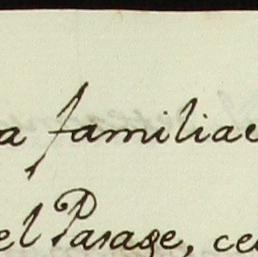 a familiae
el Parage, ce